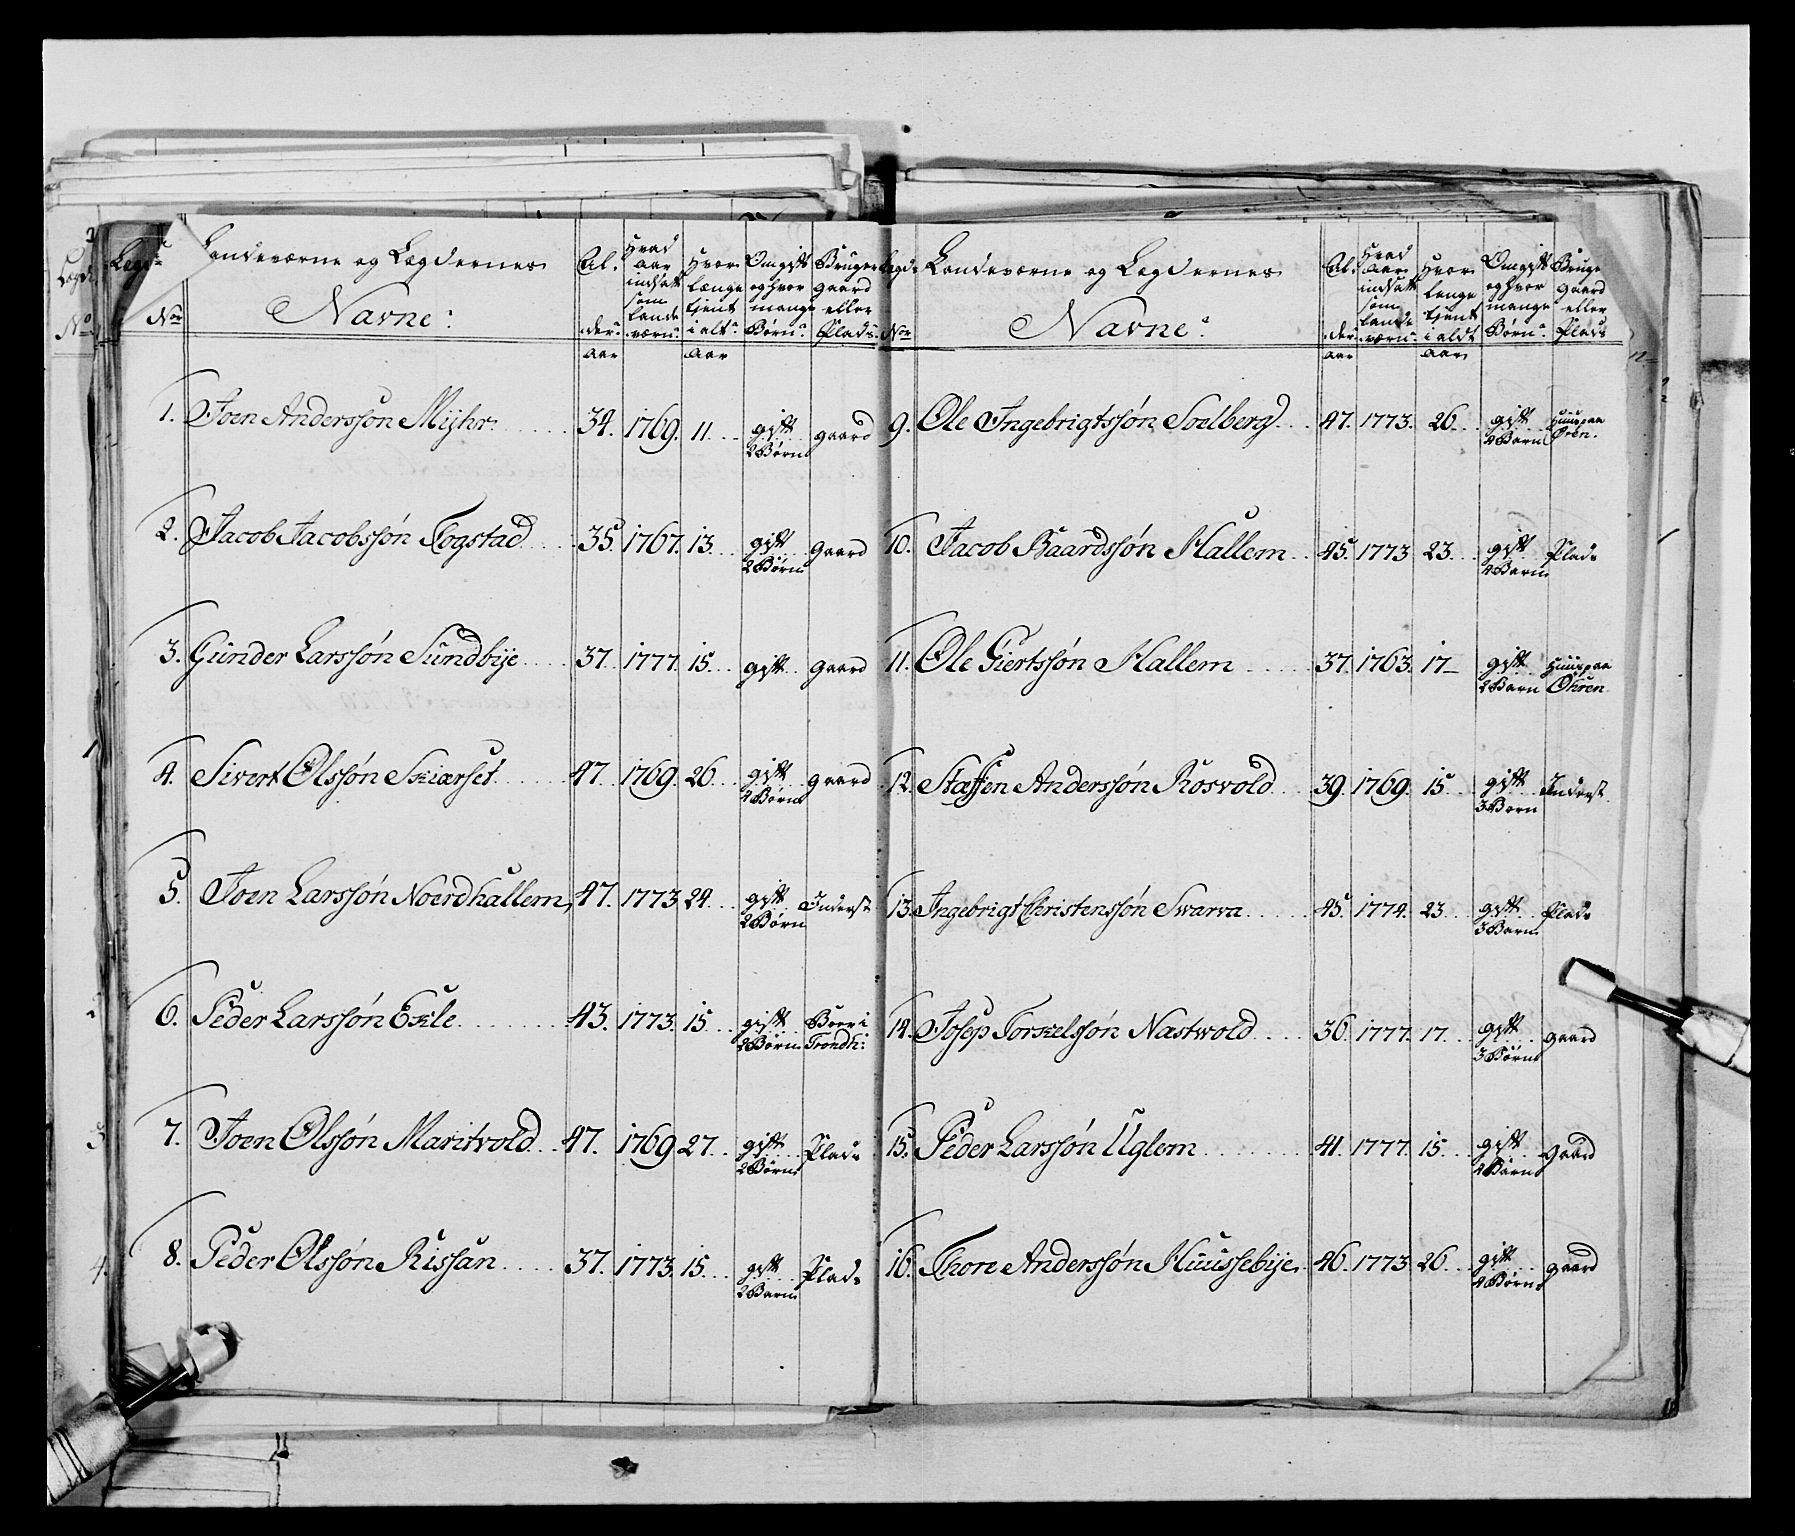 Legd Landeværne og Lægdernes Al- Hvad Aar indsatt som Lande Hvor længe tjent i alt Om gift og hvor mange Børn Bruger gaard eller Plads
No Navne: der værn
Aar Aar
1. Joen Anderssøn Mijhr 34. 1769. 11. gift 2 Børn gaard
2. Jacob Jacobssøn Fogstad 35. 1767. 13. gift 2 Børn gaard
3. Gunder Larssøn Sundbije 37. 1777. 15. gift gaard
4. Sivert Olssøn Skiærset 47. 1769. 26. gift 4 Børn gaard
5. Joen Larssøn Noerdhallem, 47. 1773. 24. gift 2 Børn Inderst
6. Peder Larssøn Eκle 43. 1773. 15. gift 2 Børn Boer i Trondh:
7. Joen Olssøn Maritvold 47. 1769. 27. gift 2 Børn Plads
8. Peder Olssøn Rissan 37. 1773. 15. gift 2 Barn Plads
Legd. Landeværne og Lægdernes Al- Hvad Aar indsatt som Lande Hvor lenge tjent i aldt Om gift og hvor mange Børn Bruger gaard eller Plads
No Navne: der værn
Aar Aar
9. Ole Ingebrigtssøn Soelberg 47. 1773. 26. gift 4 Barn Huus paa Øren.
10. Jacob Baardssøn Hallem 45. 1773 23. gift 4 Barn Plads
11. Ole Giertssøn Hallem 37. 1763. 17 gift 2 Barn Huus paa Ohren
12. Staffen Anderssøn Rosvold 39. 1769. 15. gift 3 Born Inderst
13. Ingebrigt Christenssøn Swarva 45. 1774. 23 gift 3 Barn Plads
14. Josep Torskelssøn Nastwold 36. 1777. 17. gift 3 Børn gaard
15. Peder Larssøn Uglem 41. 1777. 15. gift 2 Børn gaard
16. Thore Anderssøn Huussebije. 46. 1773 26. gift 4 Børn gaard